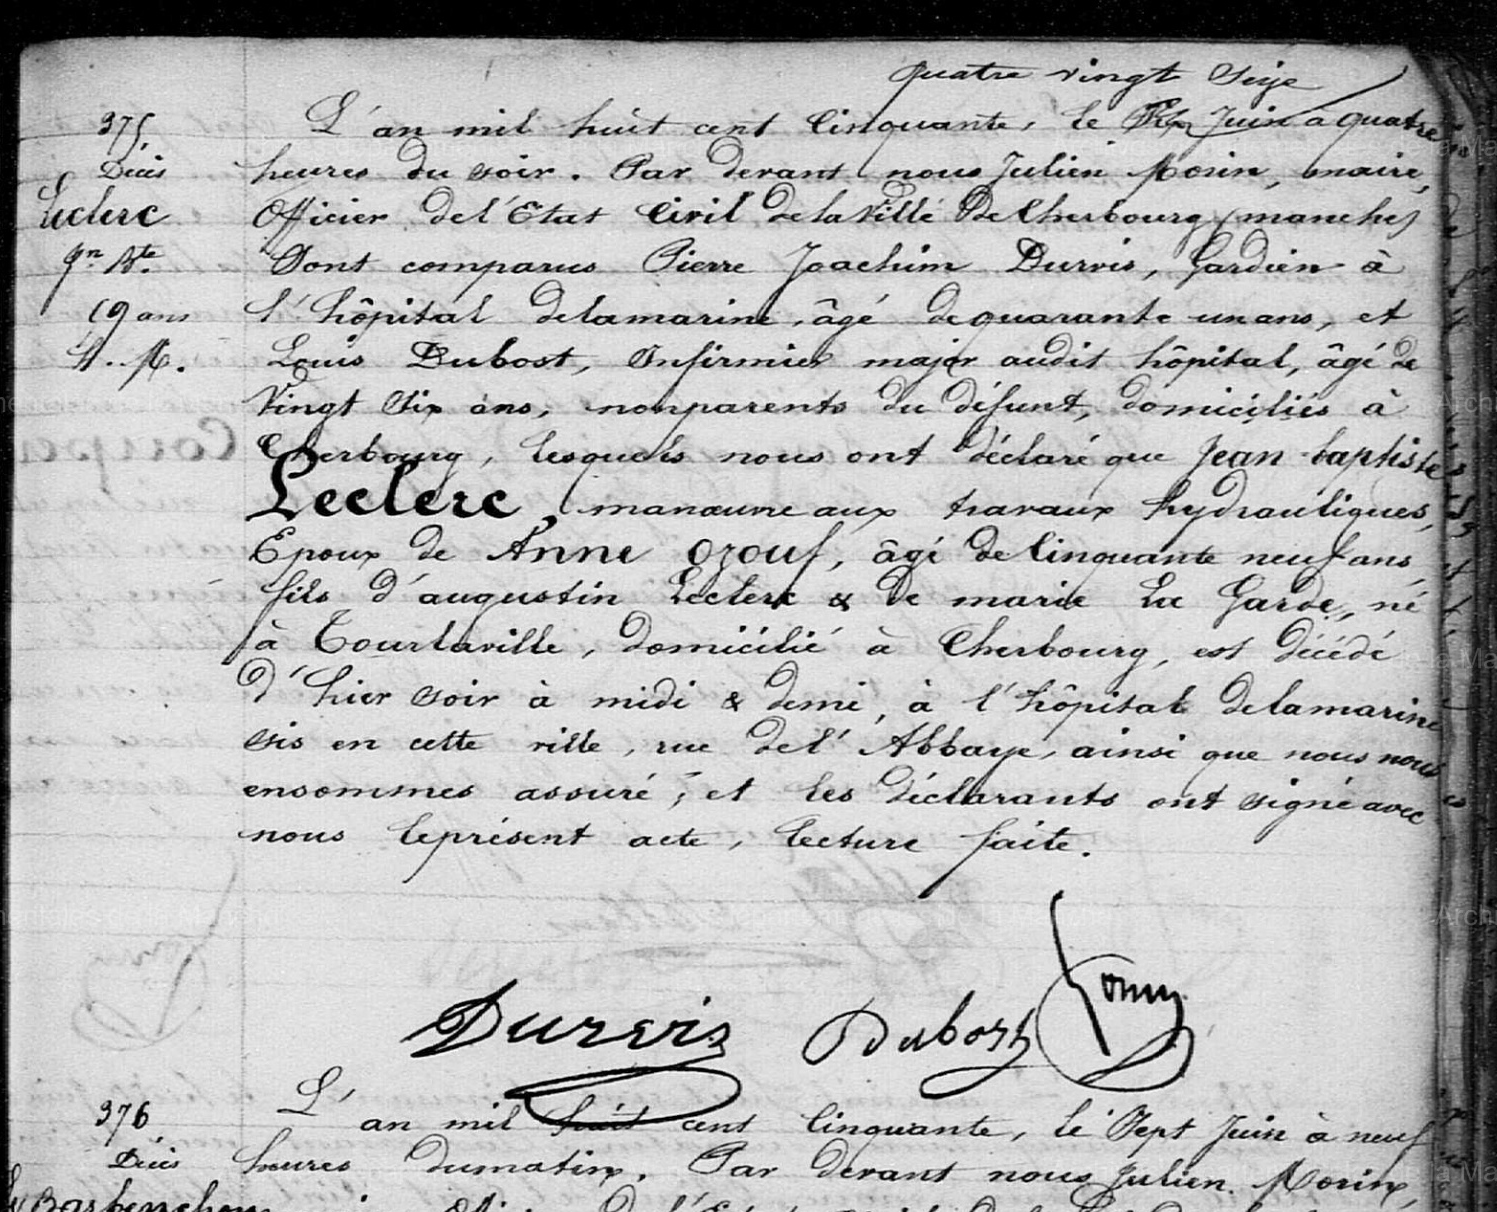 quatre vingt seize
375
Décès
Leclerc
Jn Bte
59 ans
H. M.
L'an mil huit cent cinquante, le Six Juin a quatre
heures du soir. Par devant nous Julien Morin, maire,
Officier de l'Etat Civil de la Ville de Cherbourg (manche)
Sont comparus Pierre Joachim Durvis, Gardien à
l'hôpital delamarine, âgé dequarante unans, et
Louis Dubost, Infirmier major audit hôpital, âgé de
Vingt Six ans, nonparents du défunt, domiciliés à
Cherbourg, lesquels nous ont déclaré que Jean-baptiste
Leclerc, manœuvre aux travaux hydrauliques,
Epoux de Anne Ozouf, âgé de Cinquante neuf ans,
fils d'augustin Leclerc & de marie La Garde, né
à Tourlaville, domicilié à Cherbourg, est décédé
d'hier soir à midi & demi, à l'hôpital delamarine
sis en cette ville, rue del'Abbaye, ainsi que nous nous
ensommes assuré, et les déclarants ont signé avec
nous leprésent acte, lecture faite.
Dubost
376
Décès
L'an mil huit cent cinquante, le Sept Juin à neuf
heures dumatin. Par devant nous Julien Morin,